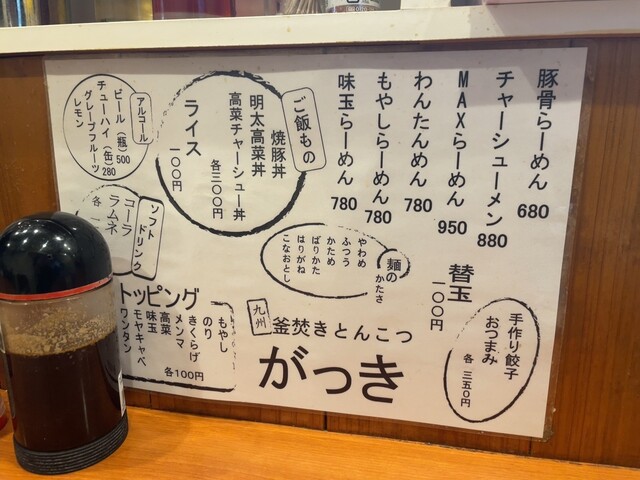 豚骨らーめん 680
チャーシューメン 880
MAXらーめん 950
わんたんめん 780
もやしらーめん 780
味玉らーめん 780
替玉
一〇〇円
ご飯もの
焼豚丼
明太高菜丼
高菜チャーシュー丼
各三〇〇円
ライス
一〇〇円
アルコール
ビール(瓶)500
チューハイ(缶)280
グレープフルーツ
レモン
ソフトドリンク
コーラ
ラムネ
各一
麺のかたさ
やわめ
ふつう
かため
ばりかた
はりがね
こなおとし
手作り餃子
おつまみ
各三五〇円
トッピング
もやし
のり
きくらげ
メンマ
高菜
味玉
モヤキャベ
ワンタン
各100円
九州
釜焚きとんこつ
がっき